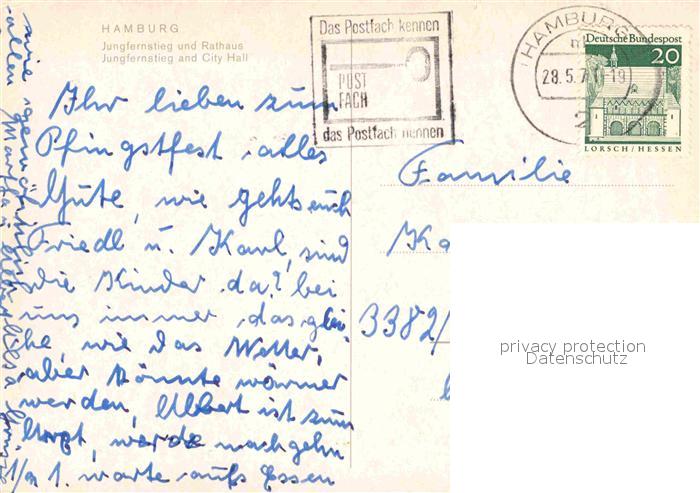 HAMBURG
Jungfernstieg und Rathaus
Jungfernstieg and City Hall
Das Postfach kennen
POST
FACH
das Postfach nennen
HAMBURG
28.5.7 -19
2
Deutsche Bundespost
20
LORSCH/HESSEN
Ihr lieben zum
Pfingstfest alles
Gute, wie gehts euch
Friedl u. Karl, sind
die Kinder da? bei
uns immer das glei
che, wie das Wetter,
aber könnte wärmer
werden, ist zum
werde nachgehn
1. warte aufs Essen
wie
allen
Familie
Ka
3382/
privacy protection
Datenschutz